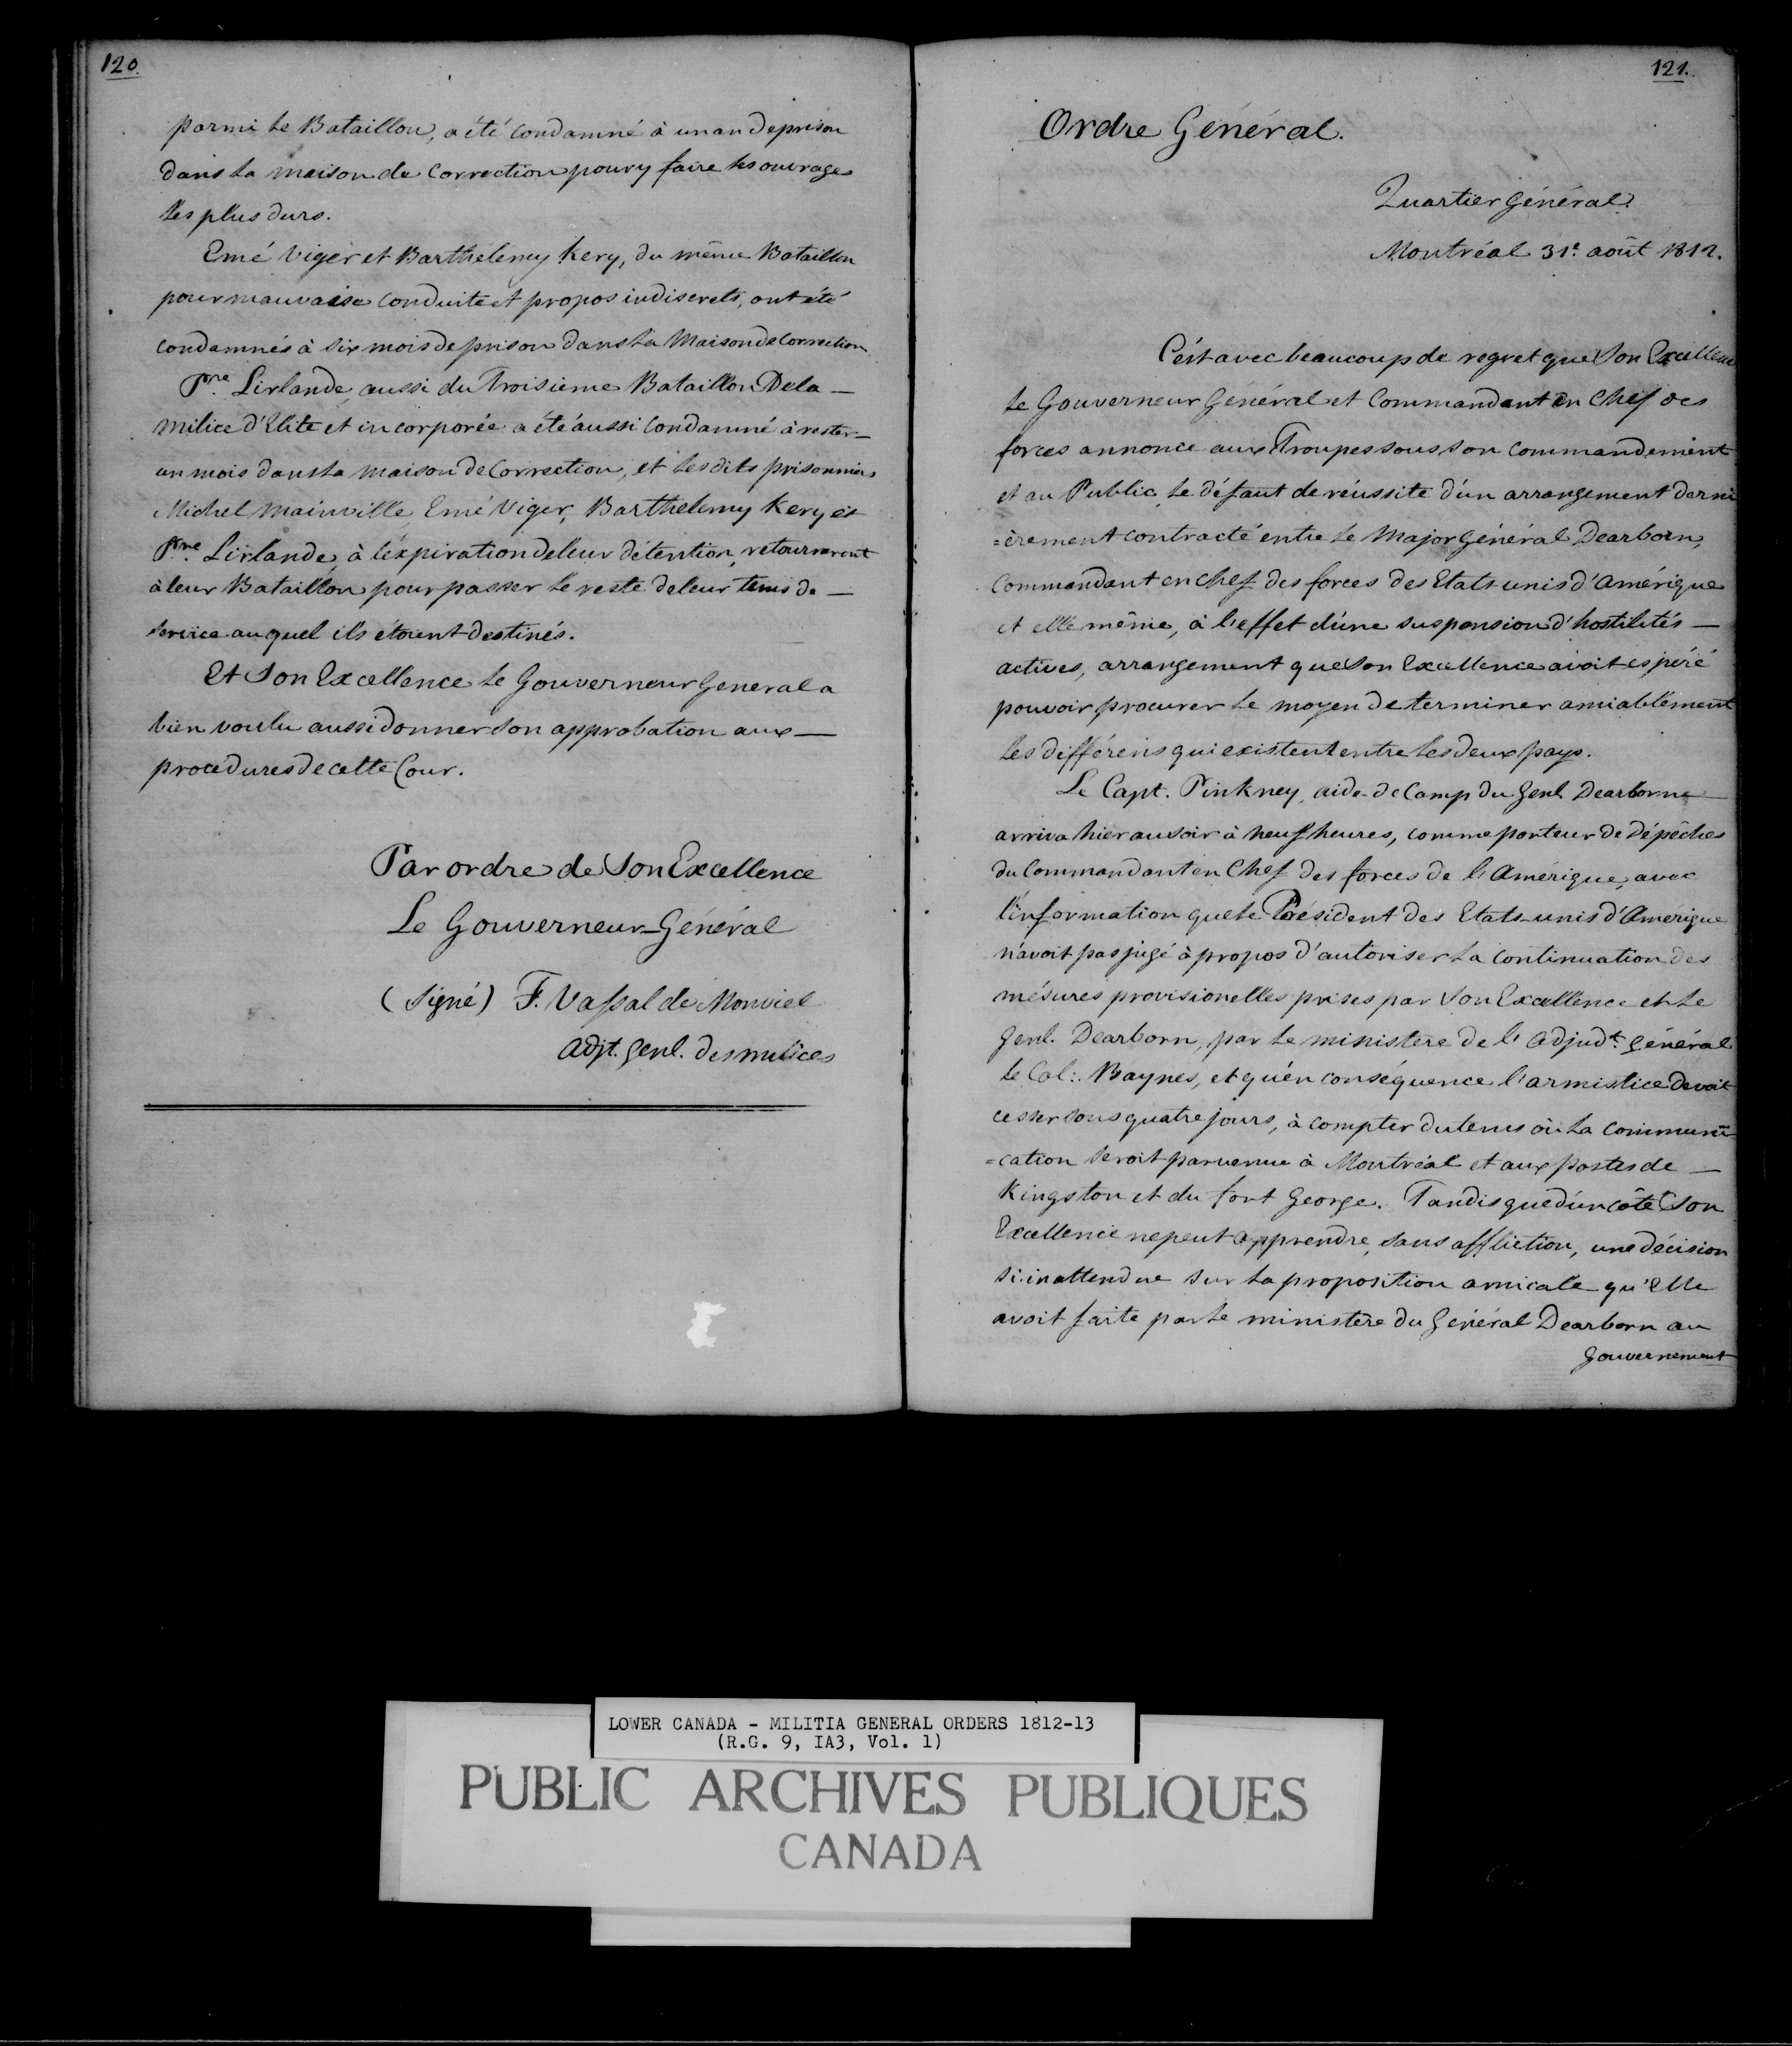 120.
parmi le Bataillon, a été condamné à un an de prison
dans la maison de correction pour y faire les ouvrages
les plus durs.
Emé Viger et Barthelemy Kery, du même Bataillon
pour mauvaise conduite et propos indiscrets, ont été
condamnés à six mois de prison dans la Maison de Correction
Prre. Lirlande, aussi du Troisieme Bataillon De la —
milice d'Elite et incorporée a été aussi condamné à rester —
un mois dans la maison de Correction, et les dits prisonniers
Michel Mainville, Emé Viger, Barthelemy Kery et
Prre. Lirlande, à l'expiration de leur détention, retourneront
à leur Bataillon pour passer le reste de leur tems de —
service auquel ils étoient destinés.
Et Son Excellence le Gouverneur General a
bien voulu aussi donner son approbation aux —
procedures de cette Cour.
Par ordre de Son Excellence
Le Gouverneur-Général
(Signé) F. Vassal de Monviel
Adjt. Genl. des milices
121.
Ordre Général.
Quartier Général
Montréal 31e. août 1812.
C'est avec beaucoup de regret que Son Excellence
le Gouverneur Général et Commandant en Chef des
forces annonce aux Troupes sous son commandement
et au Public, le défaut de réussite d'un arrangement derni
=èrement contracté entre le Major Général Dearborn,
Commandant en chef des forces des Etats-unis d'Amérique
et elle même, à l'effet d'une suspension d'hostilités —
actives, arrangement que Son Excellence avoit espéré
pouvoir procurer le moyen de terminer amiablement
les différens qui existent entre les deux pays.
Le Capt. Pinkney, aide-de Camp du Genl. Dearborn —
arriva hier au soir à neuf heures, comme porteur de Dépêches
du Commandant en Chef des forces de l'Amérique, avec
l'information que le Président des Etats-unis d'Amerique
n'avoit pas jugé à propos d'autoriser la continuation des
mésures provisionelles prises par Son Excellence et le
Genl. Dearborn, par le ministere de l'Adjudt. Général
le Col: Baynes, et qu'en conséquence l'armistice devoit
cesser sous quatre jours, à compter du tems où la communi
=cation seroit parvenue à Montréal et aux postes de —
Kingston et du fort George. Tandis que d'un côté Son
Excellence ne peut apprendre, sans affliction, une décision
si inattendue sur la proposition amicale qu'Elle
avoit faite par le ministère du Général Dearborn au
Gouvernement
LOWER CANADA - MILITIA GENERAL ORDERS 1812-13
(R.G. 9, IA3, Vol. 1)
PUBLIC ARCHIVES PUBLIQUES
CANADA